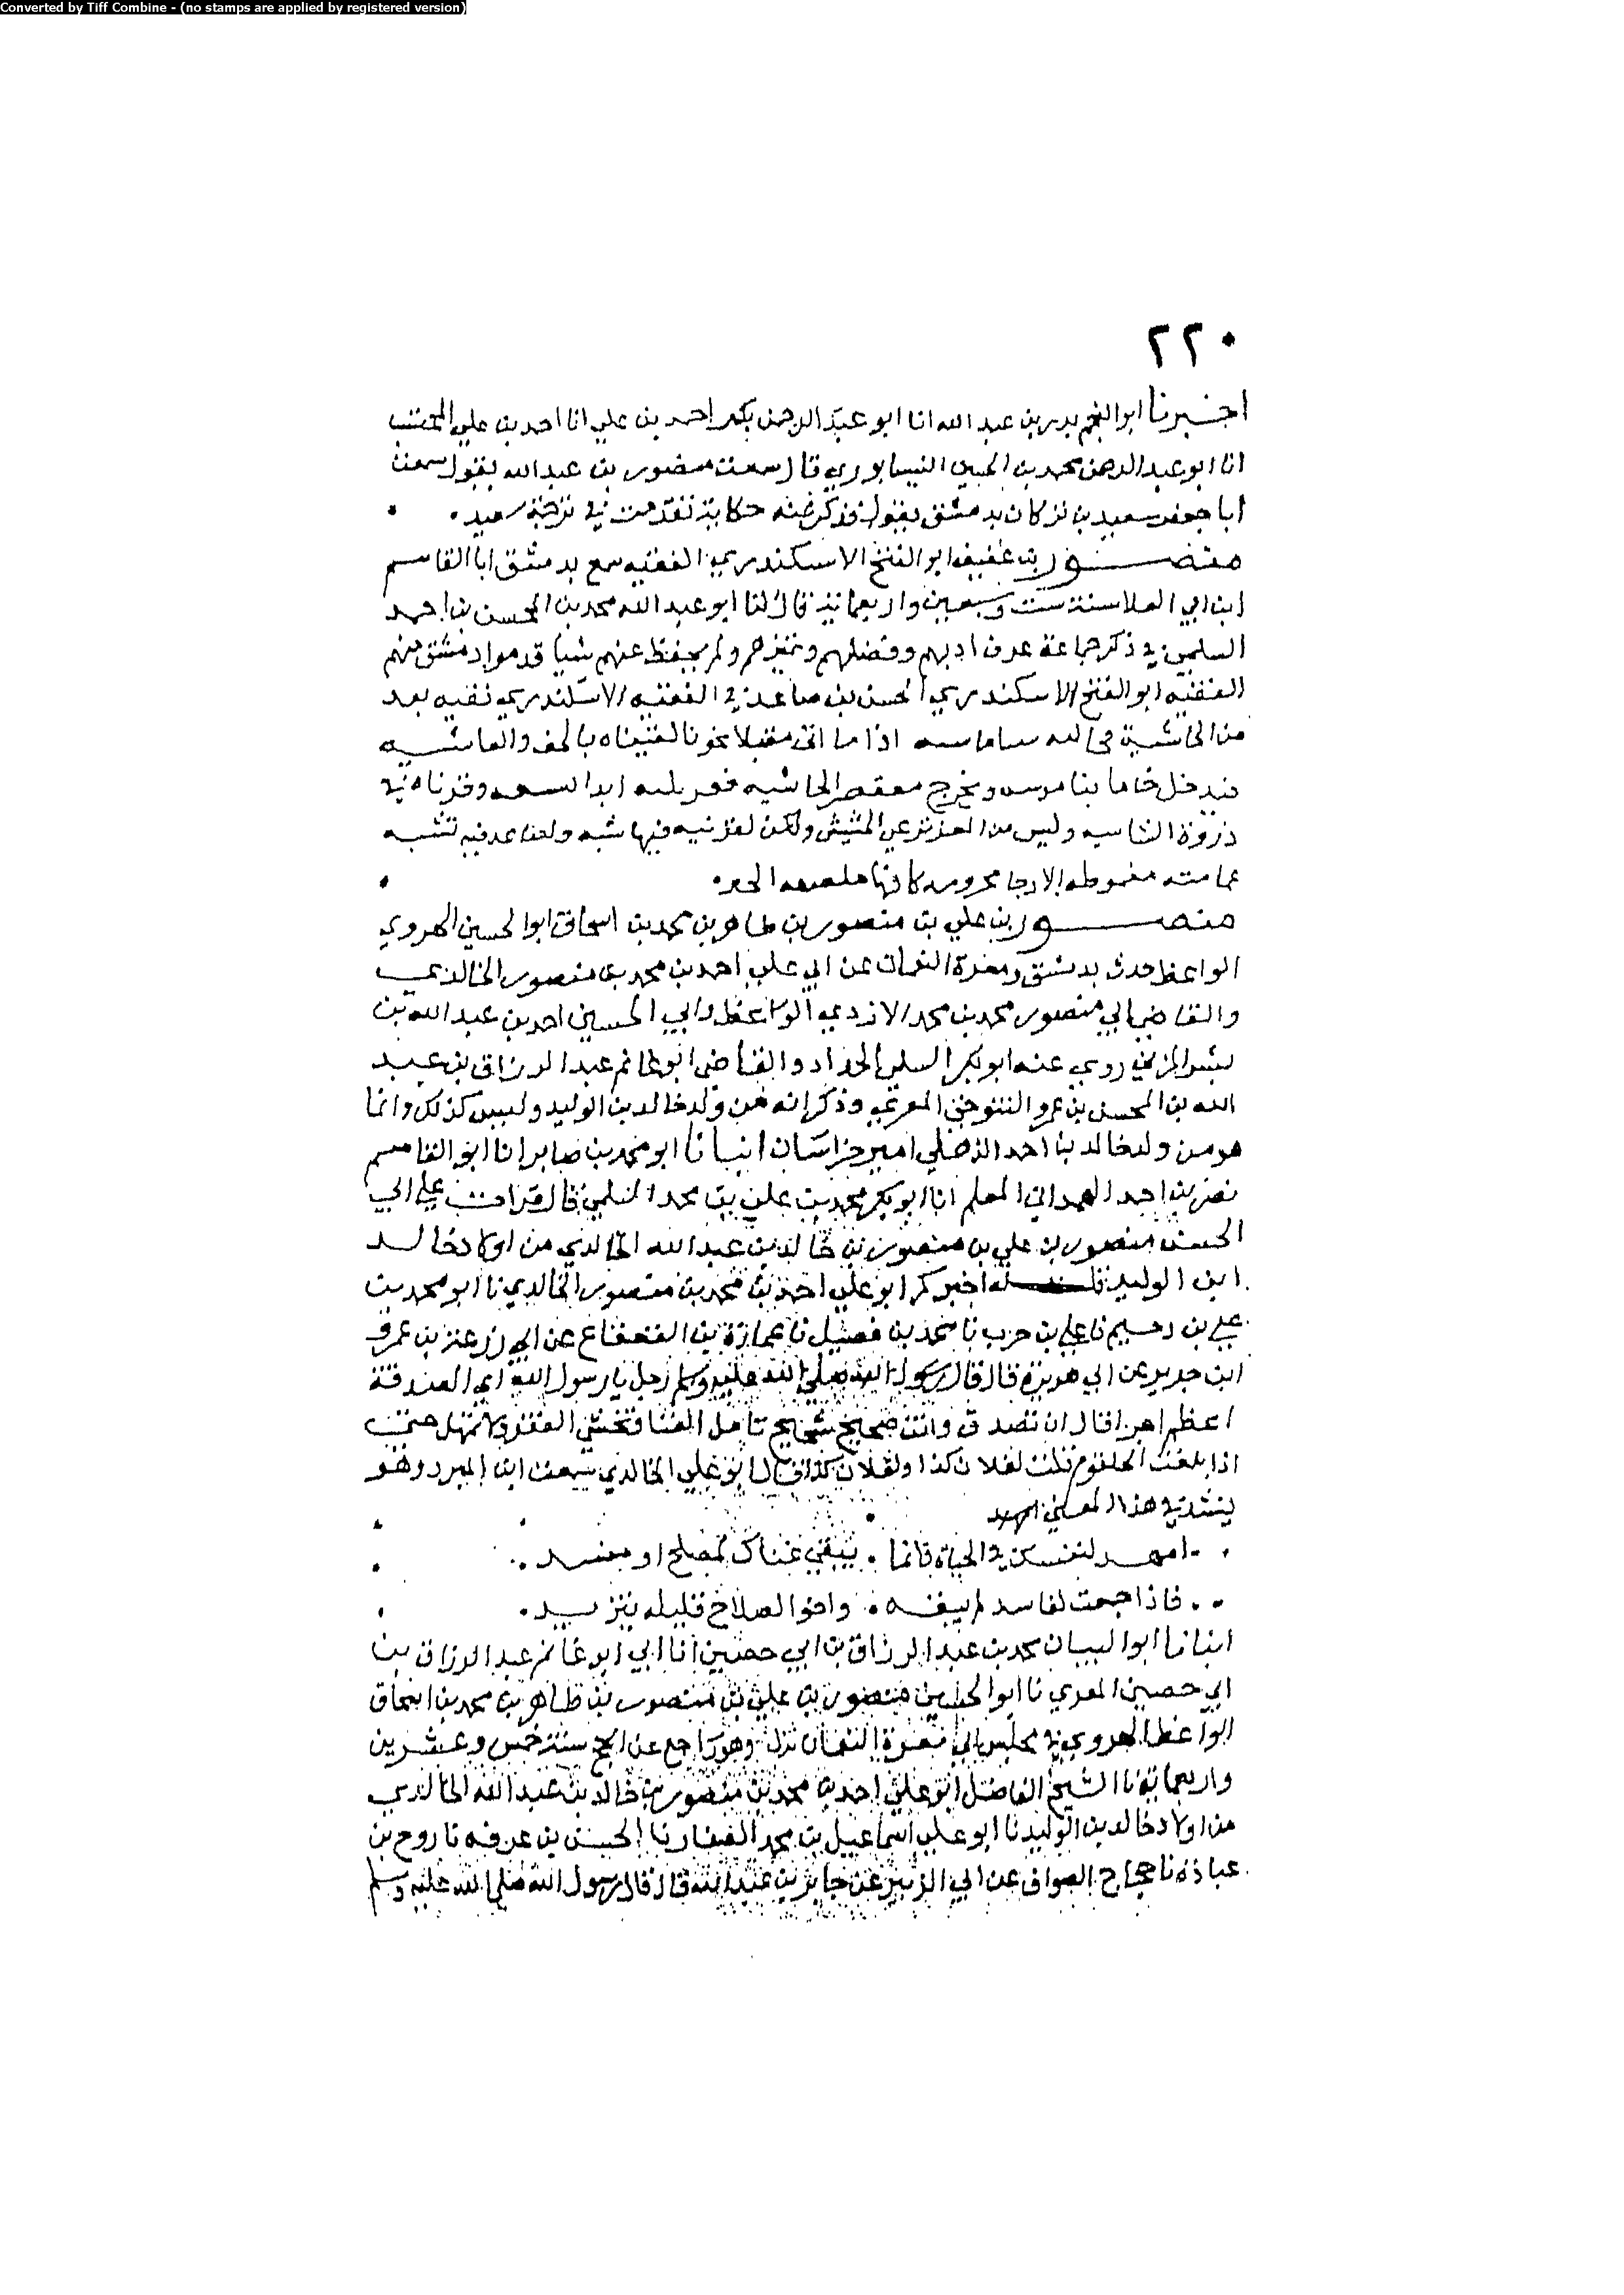 Converted by Tiff Combine - (no stamps are applied by registered version)
٢٢٠
اخبرنا ابو النجم بدر بن عبد الله انا ابو عبد الرحمن بكر احمد بن علي انا احمد بن علي المحتسب
انا ابو عبد الرحمن محمد بن الحسين النيسابوري قال سمعت منصور بن عبد الله يقول سمعت
ابا جعفر سعيد بن تركان بدمشق يقول فذكر عنه حكاية تقدمت في ترجمة سعيد
منصور بن عفيف ابو الفتح الاسكندري الفقيه سمع بدمشق ابا القاسم
ابن ابي العلا سنة ست وسبعين واربعماية قال لنا ابو عبد الله محمد بن المحسن بن احمد
السلمي في ذكر جماعة عرف ادبهم وفضلهم وتميزهم ولم يحفظ عنهم شيا قدموا دمشق منهم
الفقيه ابو الفتح الاسكندري الحسن بن صاعد في الفقيه الاسكندري نفيه بعد
من الحاشية اذا ما اتى مقبلا نحونا لقيناه بالحف والغاشيه
فيدخل ويخرج الحاشيه ابدا وقرناه في
ذروة الناسيه وليس من العز ولكن لعزنيه فيها شبه تشبه
عمامته
منصور بن علي بن منصور بن طاهر بن محمد بن اسحاق ابو الحسين الهروي
الواعظ حدث بدمشق ومعرة النعمان عن ابي علي احمد بن محمد بن منصور الخالدي
والقاضي ابي منصور محمد بن محمد الازدي الواعظ وابي الحسين احمد بن عبد الله بن
بشر المزني روى عنه ابو بكر السلمي الحداد والقاضي ابو غانم عبد الرزاق بن عبد
الله بن المحسن بن عمرو التنوخي المعري وذكر انه من ولد خالد بن الوليد وليس كذلك وانما
هو من ولد خالد بن احمد الذهلي امير خراسان انبانا ابو محمد بن صابر انا ابو القاسم
نصر بن احمد الهمداني المعلم انا ابو بكر محمد بن علي بن محمد السلمي قال قرات على ابي
الحسين منصور بن علي بن منصور بن خالد بن عبد الله الخالدي من اولاد خالد
ابن الوليد قلت له اخبركم ابو علي احمد بن محمد بن منصور الخالدي نا ابو محمد بن
علي بن رحيم نا علي بن حرب نا محمد بن فضيل نا عمارة بن القعقاع عن ابي زرعة بن عمرو
ابن جرير عن ابي هريرة قال قال رسول الله صلى الله عليه وسلم رجل يا رسول الله اي الصدقة
اعظم اجرا قال ان تصدق وانت صحيح شحيح تامل الغنا وتخشى الفقر ولا تمهل حتى
اذا بلغت الحلقوم قلت لفلان كذا ولفلان كذا قال ابو علي الخالدي سمعت ابن المبرد وهو
ينشد في هذا المعنى
امهد لنفسك في الحياة فانما يبقى غناك لمصلح او مفسد
فاذا جمعت لفاسد لم يبقه واخو الصلاح قليله يتزيد
انبانا ابو البيان محمد بن عبد الرزاق بن ابي حصين انا ابي ابو غانم عبد الرزاق بن
ابي حصين المعري نا ابو الحسين منصور بن علي بن منصور بن طاهر بن محمد بن اسحاق
الواعظ الهروي في مجلس ابي بمعرة النعمان نزل وهو راجع عن الحج سنة خمس وعشرين
واربعماية نا الشيخ الفاضل ابو علي احمد بن محمد بن منصور بن خالد بن عبد الله الخالدي
من اولاد خالد بن الوليد نا ابو علي اسماعيل بن محمد الصفار نا الحسن بن عرفه نا روح بن
عبادة نا حجاج الصواف عن ابي الزبير عن جابر بن عبد الله قال قال رسول الله صلى الله عليه وسلم